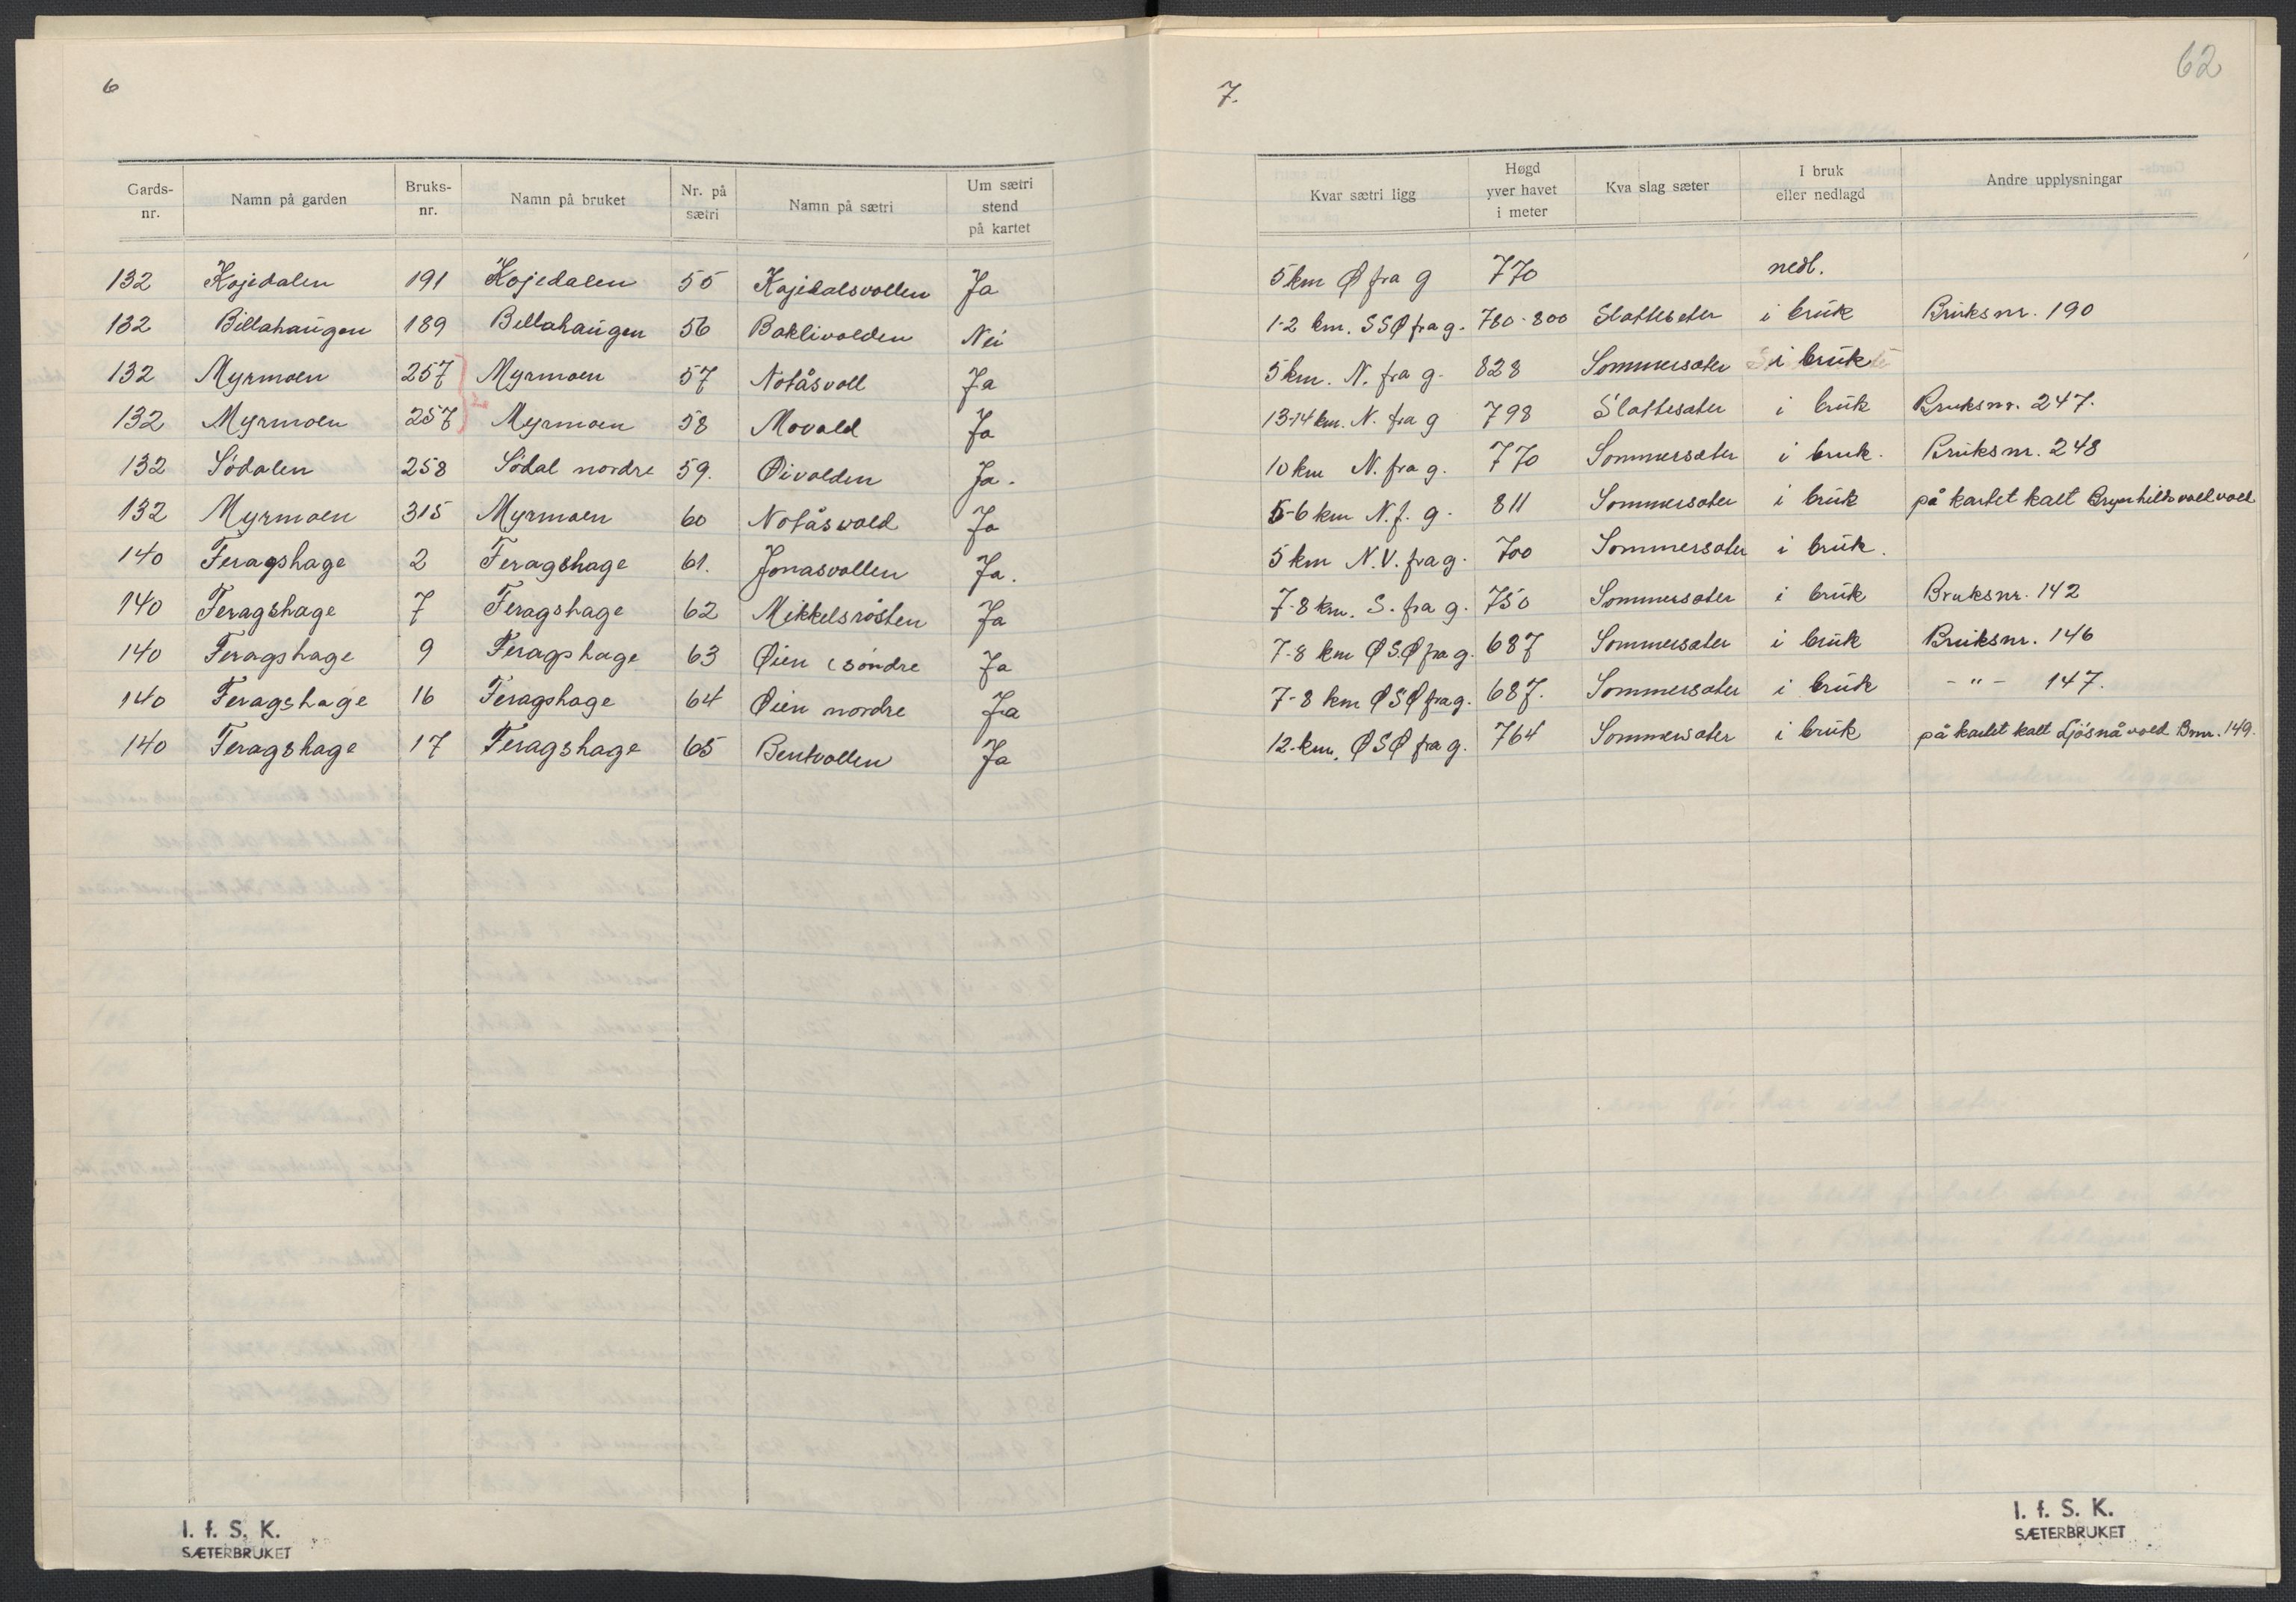 6
Gards-nr. | Namn på garden | Bruks-nr. | Namn på bruket | Nr. på sætri | Namn på sætri | Um sætri stend på kartet
132 Kojedalen 191 Kojedalen 55 Kojedalsvollen Ja
132 Billahaugen 189 Billahaugen 56 Baklivolden Nei
132 Myrmoen 257 Myrmoen 57 Notåsvoll Ja
132 Myrmoen 257 Myrmoen 58 Movold Ja
132 Södalen 258 Södal nordre 59. Øivolden Ja.
132 Myrmoen 315 Myrmoen 60 Notåsvold Ja
140 Feragshage 2 Feragshage 61. Jonasvollen Ja.
140 Feragshage 7 Feragshage 62 Mikkelsrösten Ja
140 Feragshage 9 Feragshage 63 Øien (söndre Ja
140 Feragshage 16 Feragshage 64 Øien nordre Ja
140 Feragshage 17 Feragshage 65 Bentvollen Ja
I. f. S. K.
SÆTERBRUKET
62
7.
Kvar sætri ligg | Høgd yver havet i meter | Kva slag sæter | I bruk eller nedlagd | Andre upplysningar
5 km Ø fra g 770 nedl.
1-2 km. SSØ fra g. 780-800 Slattesæter i bruk Bruksnr. 190
5 km. N. fra g. 828 Sommersæter i bruk
13-14 km. N. fra g 798 Slattesæter i bruk Bruksnr. 247.
10 km N. fra g. 770 Sommersæter i bruk. Bruksnr. 248
5-6 km N. f. g. 811 Sommersæter i bruk på kartet kalt Brynhildsvollvoll
5 km N.V. fra g. 700 Sommersæter i bruk.
7-8 km. S. fra g. 750 Sommersæter i bruk Bruksnr. 142
7-8 km ØSØ fra g. 687 Sommersæter i bruk Bruksnr. 146
7-8 km ØSØ fra g. 687. Sommersæter i bruk - " - 147.
12 km. ØSØ fra g. 764 Sommersæter i bruk på kartet kalt Ljösnåvold Bnr. 149.
I. f. S. K.
SÆTERBRUKET